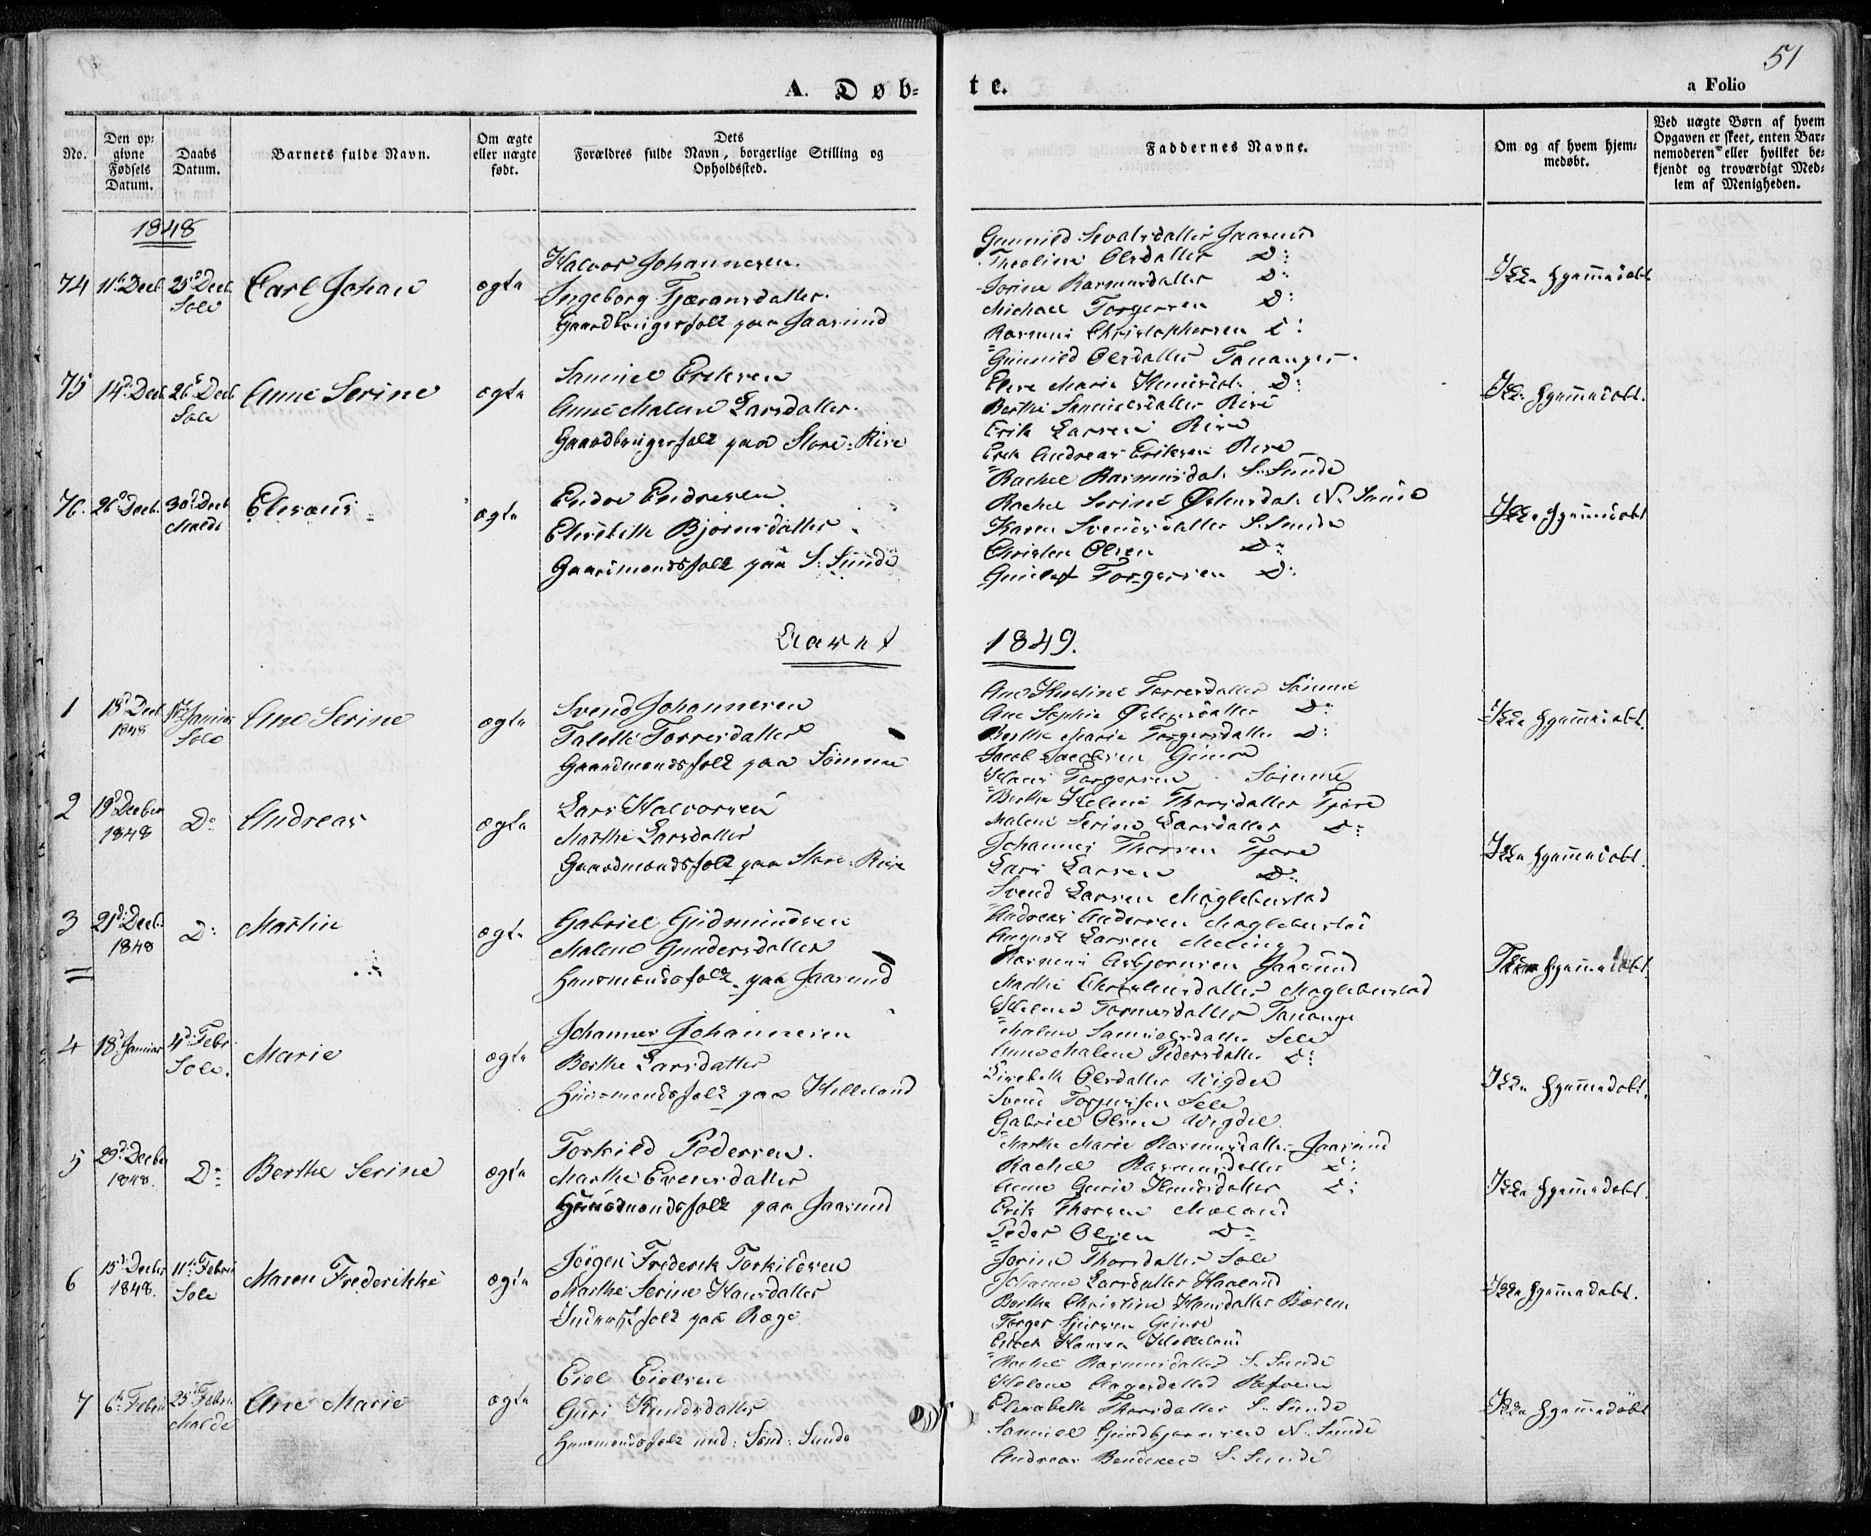 51
A. Døb-
te.
a Folio
No.
Den op-
givne
Fødsels
Datum.
Daabs
Datum.
Barnets fulde Navn.
Om ægte
eller uægte
født.
Dets
Forældres fulde Navn, borgerlige Stilling og
Opholdssted.
Faddernes Navne.
Om og af hvem hjem-
medøbt.
Ved uægte Børn af hvem
Opgaven er skeet, enten Bar-
nemoderen eller hvilket be-
kjendt og troværdigt Med-
lem af Menigheden.
1848
74 11te Decb. 25de Decb. Sole
Carl Johan
ægte
Halvor Johannesen.
Ingeborg Tjæransdatter.
Gaardbrugerfolk paa Jaasund
Gunnild Sivalsdatter Jaasund
Theoline Olsdatter D:
Sorine Rasmusdatter D:
Michael Torgersen D:
Rasmus Christophersen D:
Ikke hjemmedøbt.
75 14de Decb. 26de Decb. Sole
Anne Serine
ægte
Samuel Eriksen
Anne Malene Larsdatter.
Gaardbrugerfolk paa Store-Rise
Gunnild Olsdatter Tananger.
Else Marie Knudsdt. D:
Berthe Samuelsdatter Rise
Erik Larsen Rise
Erik Andreas Eriksen Rise
Ikke hjemmedøbt.
76. 26de Decb. 30de Decb. Malde
Elseus
ægte
Endre Endresen
Elisabeth Bjørnsdatter
Gaardmandsfolk paa S. Sunde
Rachel Rasmusdat. S. Sunde
Rachel Serine Østensdat. N. Sunde
Karen Svendsdatter S. Sunde
Christen Olsen D:
Gunlef Torgersen D:
Ikke hjemmedøbt
Aaret
1849.
1 18de Decb. 1848 Januar Sole
Ane Serine
ægte
Svend Johannesen
Talette Torresdatter
Gaardmandsfolk paa Sømme
Ane Kirstine Torresdatter Sømme
Ane Sophie Østensdatter D:
Berthe Marie Torgersdatter D:
Jacob Jacobsen Gimre
Hans Torgersen Sømme
Ikke hjemmedøbt.
2 19de Decber 1848 Do
Andreas
ægte
Lars Halvorsen
Marthe Larsdatter
Gaardmandsfolk paa Store-Rise
Berthe Helene Thorsdatter Tjøre
Malene Serine Larsdatter D:
Johannes Thorsen Tjøre
Lars Larsen D:
Svend Larsen Maglebustad
Ikke hjemmedøbt.
3 21de Decb. 1848 D:
Martin
ægte
Gabriel Gudmundsen
Malene Gundersdatter
Huusmandsfolk paa Jaasund
Andreas Andersen Maglebustad
August Larsen Meling
Rasmus Asbjørnsen Jaasund
Marthe Maglebustad
Helene Tormosdatter Tanange
Ikke hjemmedøbt
4 18de Januar 4de Febr. Sole.
Marie
ægte
Johannes Johannesen
Berthe Larsdatter
Huusmandsfolk paa Helleland
Malene Samuelsdatter Sele
Anne Malene Pedersdatter D:
Lisebeth Olsdatter Vigdel
Svend Tormosen Sele
Gabriel Olsen Vigdel
Ikke hjemmedøbt.
5 29de Decber 1848. Do
Berthe Serine
ægte
Torkild Pedersen.
Marthe Evensdatter
Huusmandsfolk paa Jaasund
Marthe Marie Rasmusdatter Jaasund
Rachel Rasmusdatter D:
Anne Gurie Knudsdatter D:
Erik Thorsen Meland
Peder Olsen D:
Ikke hjemmedøbt.
6 15de Decber 1848. 11te Febru Sole
Maren Frederikke
ægte
Jørgen Frederik Torkildsen
Marthe Serine Hansdatter
Inderstfolk paa Ræge
Jorine Thorsdatter Sole
Johanne Larsdatter Haaland
Berthe Christine Hansdatter Bærem
Torger Sjursen Gimre
Hansen Helleland
Ikke hjemmedøbt.
7 6te Febru 25de Febru Malde
Ane Marie
ægte
Eiel Eielsen
Guri Knudsdatter
Huusmandsfolk und: Sønd: Sunde
Rachel Rasmusdatter S. Sunde
Helene Aagesdatter Refsem
Elisabeth Thorsdatter S. Sunde
Samuel Gundbjørnsen N. Sunde
Andreas Bendiksen S. Sunde
Ikke hjemmedøbt